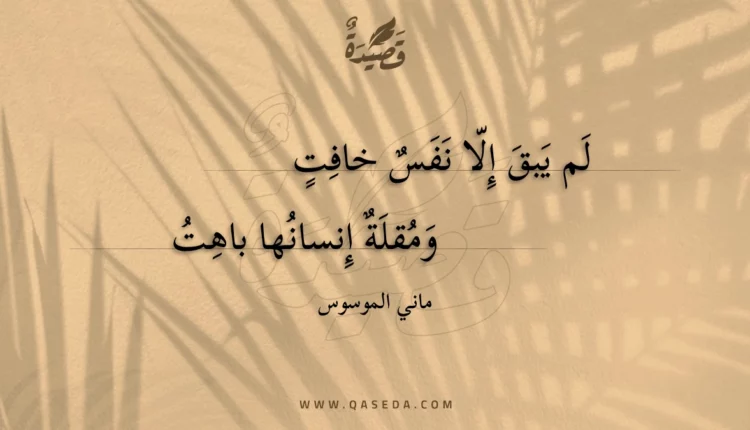 قَصِيْدَةٌ
لَم يَبقَ إِلّا نَفَسٌ خافِتٍ
وَمُقلَةٌ إِنسانُها باهِتُ
ماني الموسوس
WWW.QASEDA.COM